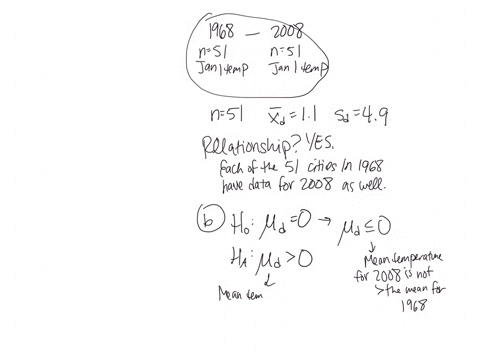 1968 — 2008
n=51 n=51
Jan 1 temp Jan 1 temp
n=51 x̄d=1.1 sd=4.9
Relationship? YES.
Each of the 51 cities in 1968
have data for 2008 as well.
(b) H₀: μd=0 → μd≤0
H₁: μd>0
Mean tem
Mean temperature
for 2008 is not
> the mean for
1968